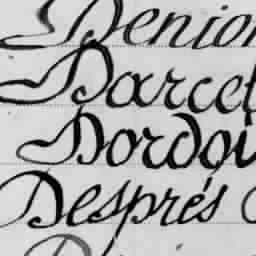 Denion
Darcel
Dordoi
Després